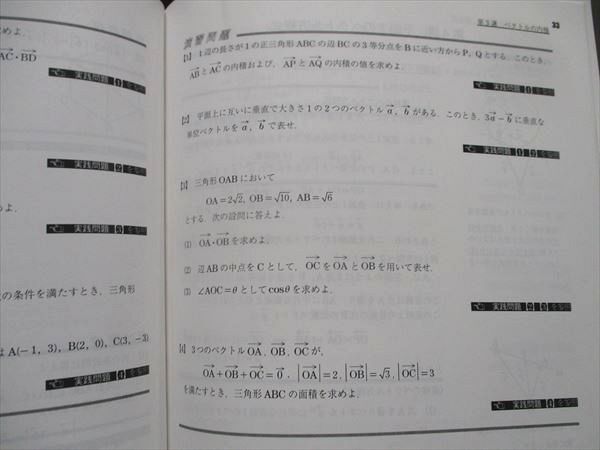 めよ.
AC・BD
実践問題 1
実践問題 2
めよ.
実践問題 3
の条件を満たすとき, 三角形
は A(−1, 3), B(2, 0), C(3, −3)
実践問題 4
第3講 ベクトルの内積 33
演習問題
[1] 1辺の長さが1の正三角形 ABC の辺 BC の3等分点を B に近い方から P, Q とする. このとき,
AB と AC の内積および, AP と AQ の内積の値を求めよ.
実践問題 1
[2] 平面上に互いに垂直で大きさ1の2つのベクトル a, b がある. このとき, 3a−b に垂直な
単位ベクトルを a, b で表せ.
実践問題 1 2
[3] 三角形 OAB において
OA=2√2, OB=√10, AB=√6
とする. 次の設問に答えよ.
(1) OA・OB を求めよ.
(2) 辺 AB の中点を C として, OC を OA と OB を用いて表せ.
(3) ∠AOC=θ として cosθ を求めよ.
実践問題 2 3
[4] 3つのベクトル OA, OB, OC が,
OA+OB+OC=0, |OA|=2, |OB|=√3, |OC|=3
を満たすとき, 三角形 ABC の面積を求めよ.
実践問題 4